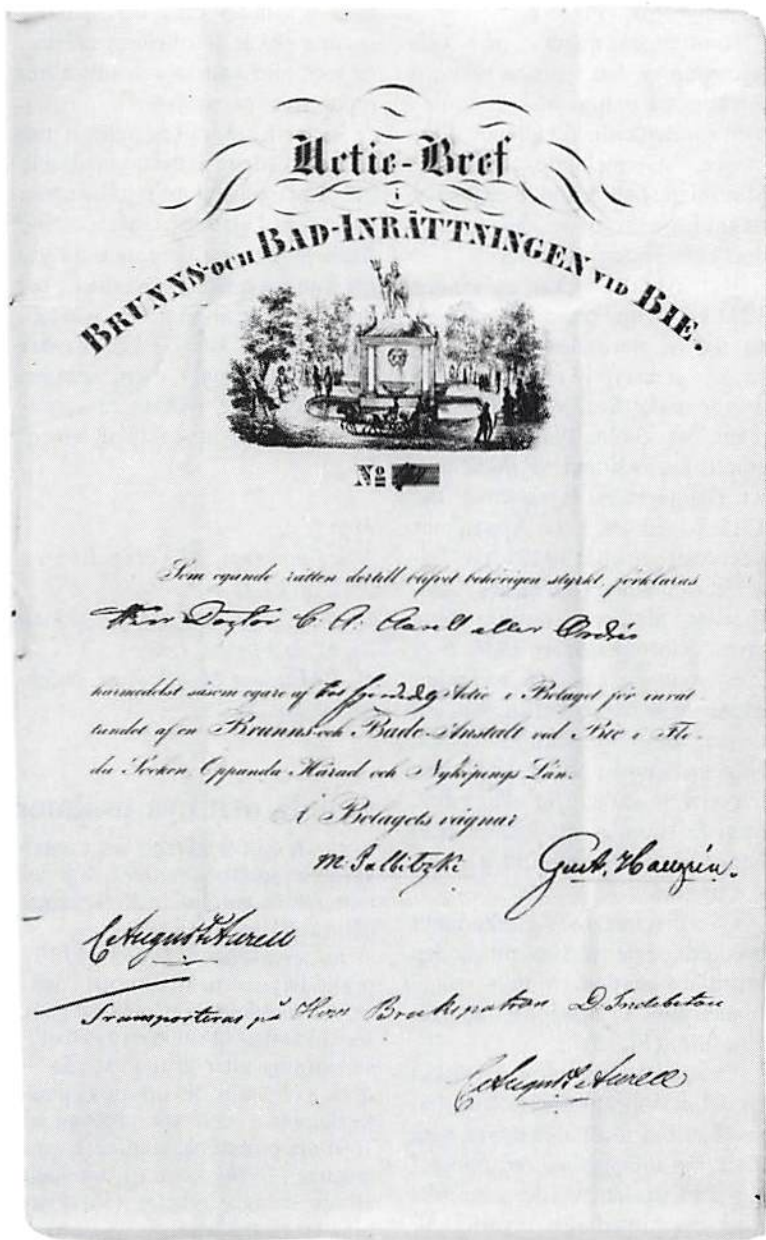 Actie-Bref
i
BRUNNS-och BAD-INRÄTTNINGEN VID BIE.
No
Som egande rätten dertill blifvit behörigen styrkt, förklaras
Herr Doctor C. A. Aurell eller Ordres
härmedelst såsom egare af Actie i Bolaget för inrät-
tandet af en Brunns-och Bade-Anstalt vid Bie i Flo-
da Socken, Oppunda Härad och Nyköpings Län.
Bolagets vägnar
M Sallitzki Gust. Haugrén.
C August Aurell
Transporteras på Herr Brukspatron D. Indebetou
C August Aurell